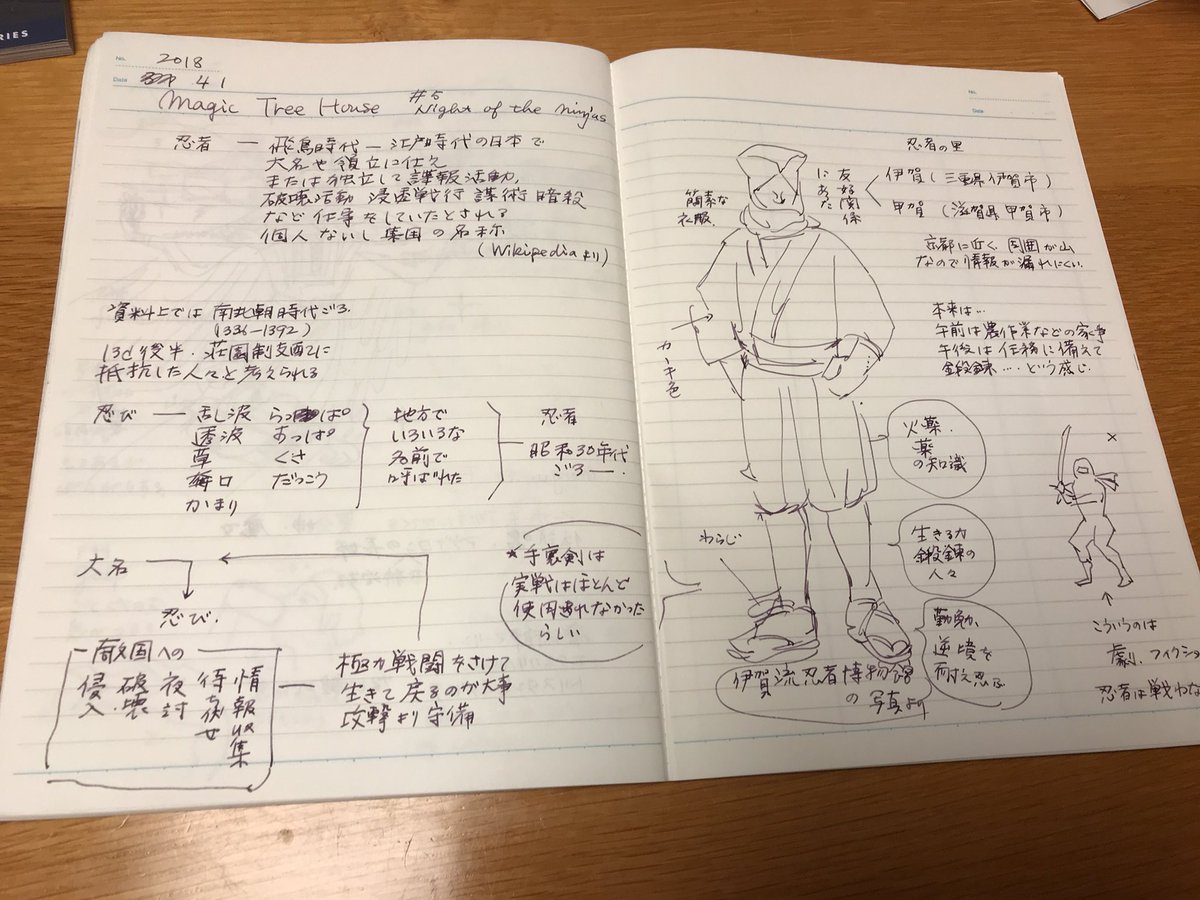 RIES
No.
2018
Date
4.1
Magic Tree House #5 Night of the ninjas
忍者 — 飛鳥時代 — 江戸時代の日本で
大名や領立に仕え
または独立して諜報活動、
破壊活動 浸透戦術 謀術 暗殺
など仕事をしていたとされる
個人ないし集団の名称
(Wikipediaより)
資料上では 南北朝時代ごろ.
(1336-1392)
13c後半・荘園制支配に
抵抗した人々と考えられる
忍び — 乱し波 らっぱ
透波 すっぱ
草 くさ
だっこう
かまり
地方で
いろいろな
名前で
呼ばれた
忍者
昭和30年代
ごろ—.
大名
忍び.
*手裏剣は
実戦はほとんど
使用されなかった
らしい
敵国への
侵入
破壊
夜討
情報収集
極力戦闘をさけて
生きて戻るのが大事
攻撃より守備
No.
Date
忍者の里
友好関係
にあった
伊賀 (三重県伊賀市)
甲賀 (滋賀県甲賀市)
簡素な
衣服.
京都に近く 周囲が山
なので情報が漏れにくい.
本来は…
午前は農作業などの家事
午後は任務に備えて
鍛錬…. という感じ.
カーキ色
火薬.
薬
の知識
生きる力
鍛錬の
人々
わらじ
勤勉、
逆境を
耐え忍ぶ
伊賀流忍者博物館
の写真より
×
↑
こういうのは
劇、フィクショ
忍者は戦わな